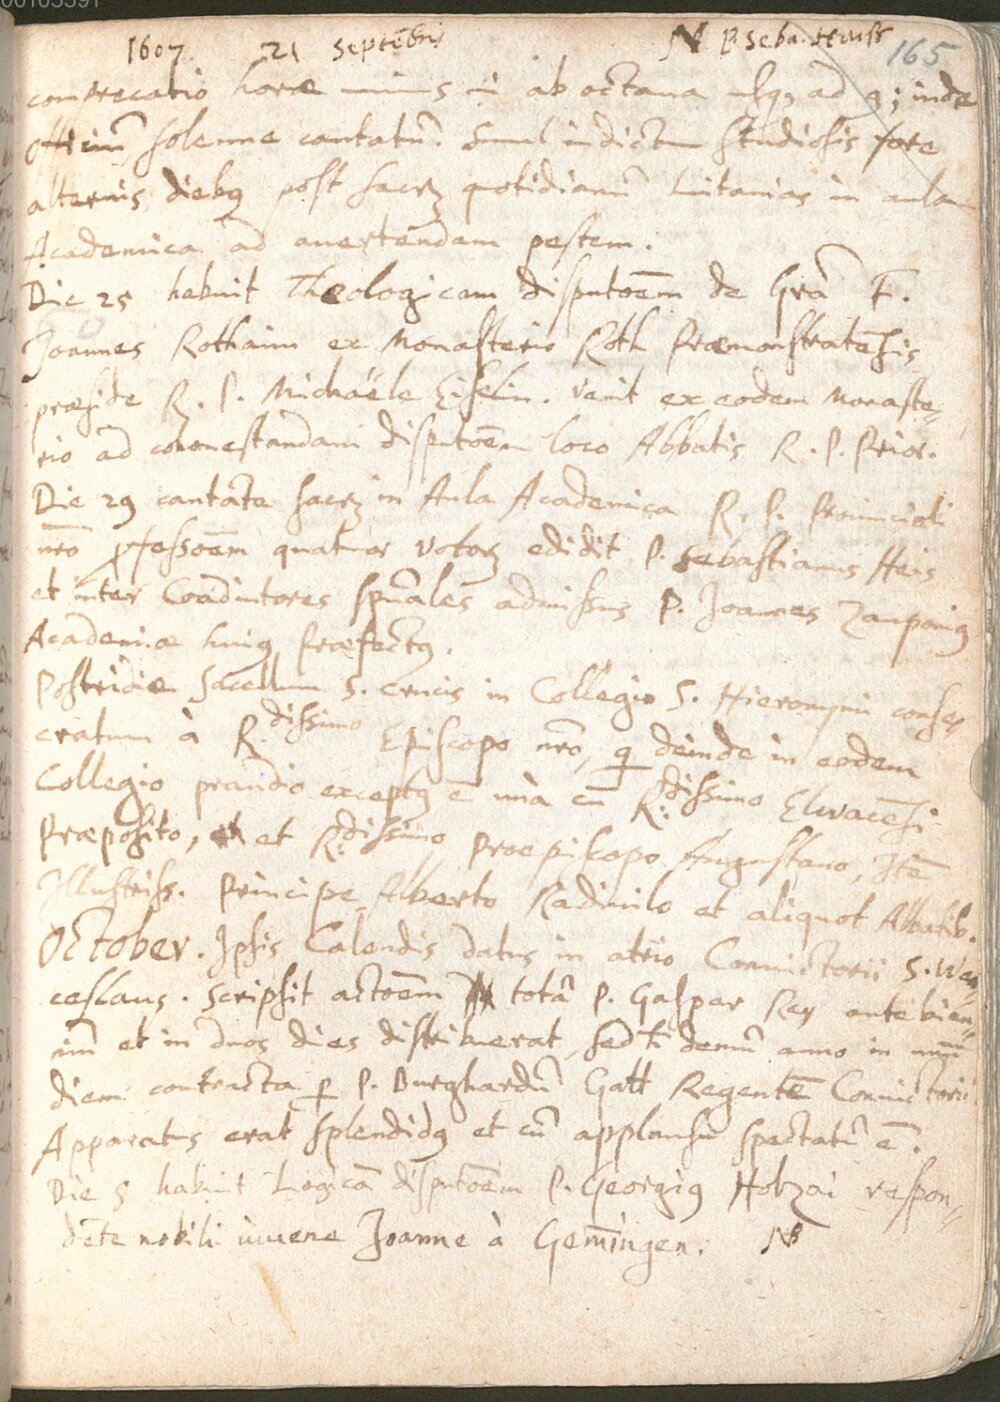 1607 21 Septẽbris N P. Seba. Heiss 165
comprecatio horæ unius ab octava usq₃ ad 9; inde
Officiũ solenne cantatũ. Simul indictum studiosis fore
alternis diebq post sacrũ quotidianũ Litanias in aula
Academica ad avertendam pestem.
Die 25 habuit Theologicam disputoẽm de Grã F.
Joannes Rothainn ex Monasterio Roth Præmonstratẽsis
præside R. P. Michaële Eiselin. Venit ex eodem Monaste,,
rio ad cohonestandam disputoẽm loco Abbatis R. P. Prior.
Die 29 cantato sacro in Aula Academica R. P. Provinciali
nr̃o p̱fessoẽm quatuor votorũ edidit P. Sebastianus Heis
et inter Coadiutores spũales admissus P. Joannes Zamponiq
Academiæ huiq Præfectq.
Postridie Sacellum S. Crucis in Collegio S. Hieronymi conse,,
cratum à R.dissimo Episcopo nr̃o, q̱ deinde in eodem
Collegio prandio exceptq ẽ unà cũ R.dissimo Elvacẽsi
Præposito, et R.dissimo Proepiscopo Augustano, Itẽ
Illustriss. Principe Alberto Radivilo et aliquot Abbatib.
October. Ipsis Calendis datus in atrio Convictorii S. Wen,,
ceslaus. Scripsit actoẽm totã P. Gasper Rey ante bien,,
iũ et in duos dies distribuerat, sed tñ demũ anno in unũ
diem contracta p̱ P. Burghardũ Gatt Regentẽ Convictorii
Apparatus erat splendidq et cũ applausu spectatũ ẽ.
Die 5 habuit Logicã disputoẽm P. Georgiq Holzai respon,,
dẽte nobili iuvene Joanne à Gem̃ingen. NB